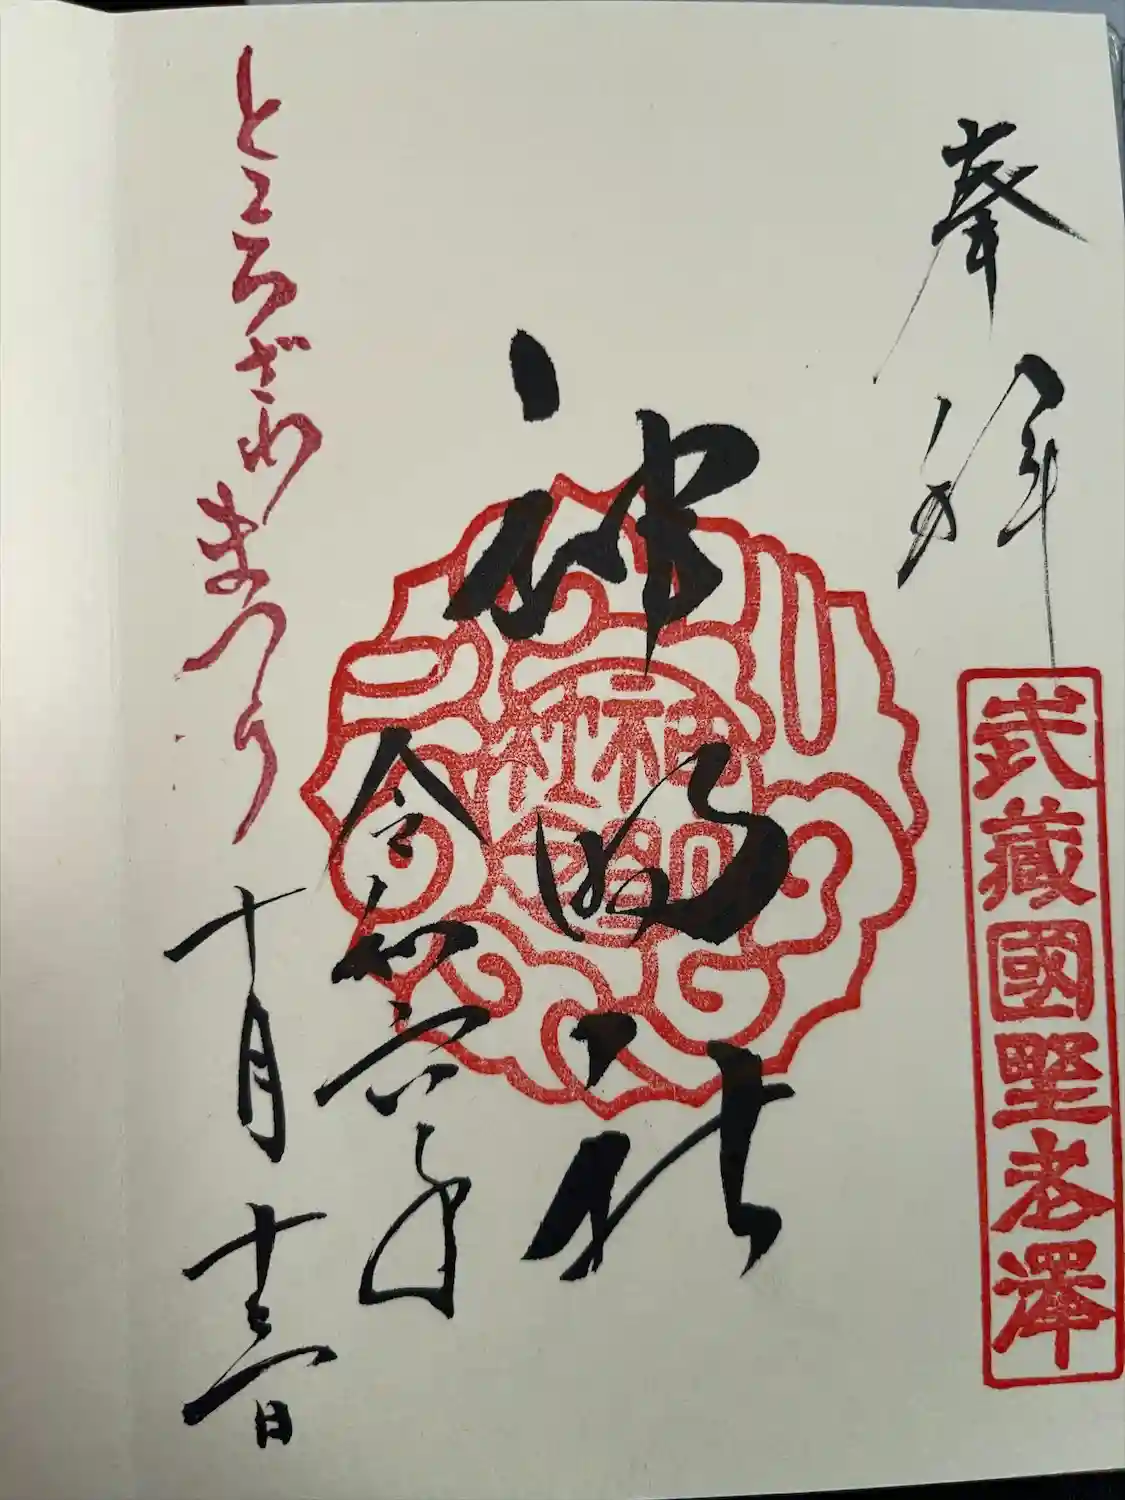 奉拝
武藏國野老澤
神明社
令和六年
十月十三日
ところざわまつり